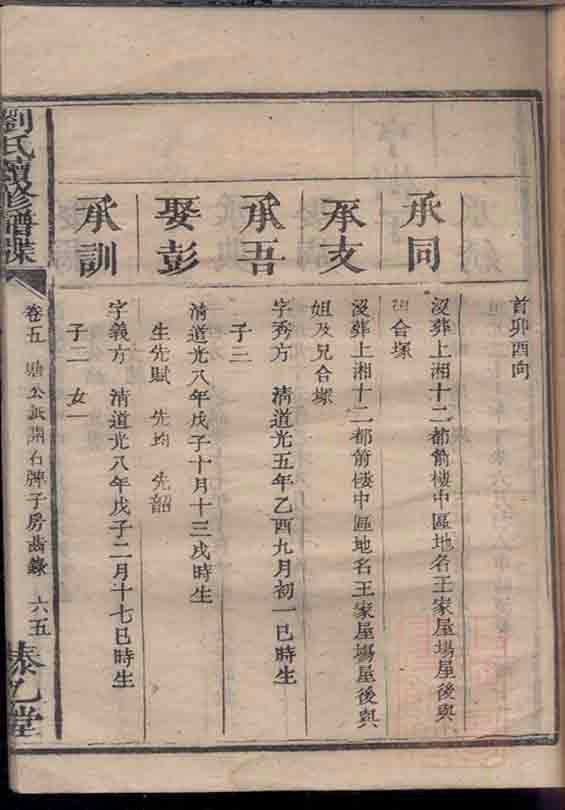 首卯酉向
承同
沒葬上湘十二都前樓中區地名王家屋場屋後與
合塚
承支
沒葬上湘十二都前樓中區地名王家屋場屋後與
姐及兄合塚
承吾
字秀方 清道光五年乙酉九月初一巳時生
子三
娶彭
清道光八年戊子十月十三戌時生
生先賦 先均 先韶
承訓
字義方 清道光八年戊子二月十七巳時生
子二 女一
劉氏續修譜牒
卷五 公派開石牌子房齒錄 六五
泰乙堂